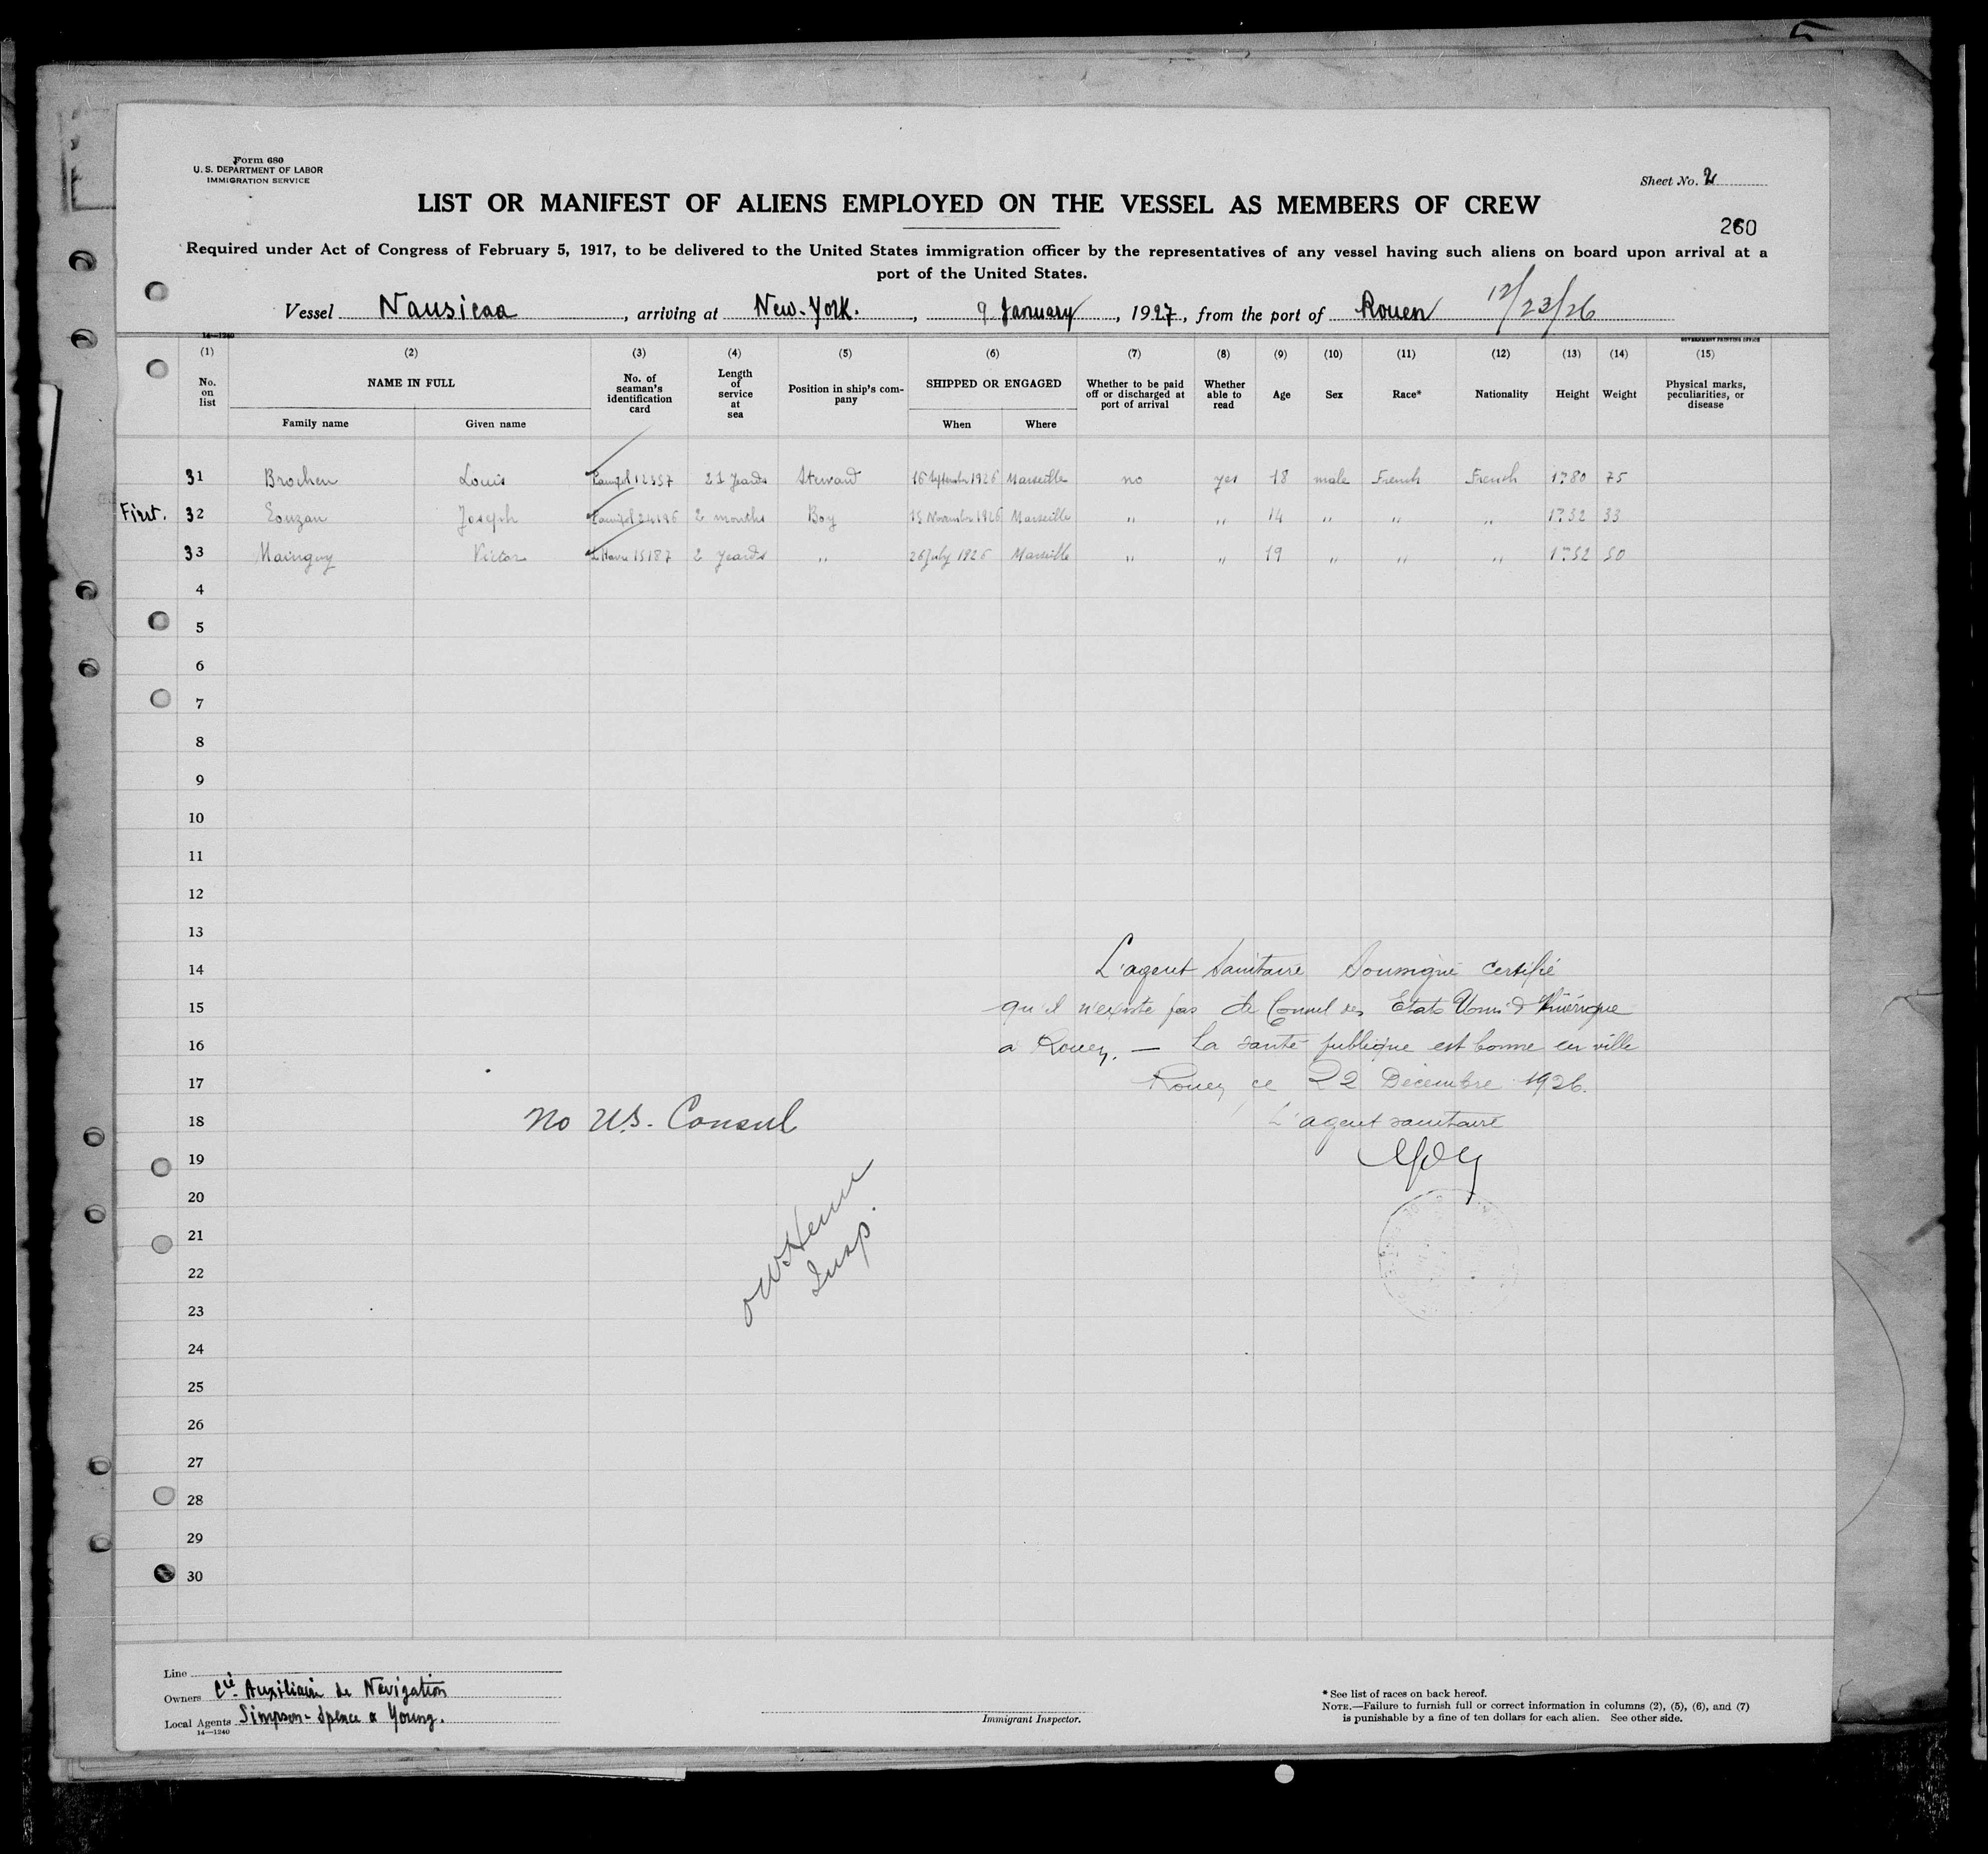 Form 680
U. S. DEPARTMENT OF LABOR
IMMIGRATION SERVICE
Sheet No. 2
LIST OR MANIFEST OF ALIENS EMPLOYED ON THE VESSEL AS MEMBERS OF CREW
260
Required under Act of Congress of February 5, 1917, to be delivered to the United States immigration officer by the representatives of any vessel having such aliens on board upon arrival at a
port of the United States.
Vessel Nausicaa, arriving at New-York., 9 January, 1927, from the port of Rouen 12/23/26
14—1240
GOVERNMENT PRINTING OFFICE
(1) (2) (3) (4) (5) (6) (7) (8) (9) (10) (11) (12) (13) (14) (15)
No. on list NAME IN FULL No. of seaman's identification card Length of service at sea Position in ship's company SHIPPED OR ENGAGED Whether to be paid off or discharged at port of arrival Whether able to read Age Sex Race* Nationality Height Weight Physical marks, peculiarities, or disease
Family name Given name When Where
31 Brochen Louis 12357 21 years Steward 16 September 1926 Marseille no yes 18 male French French 1m80 75
First. 32 Eouzan Joseph 2 months Boy 15 November 1926 Marseille " " 14 " " " 1m32 33
33 Mainguy Victor Le Havre 15187 2 years " 26 July 1926 Marseille " " 19 " " " 1m52 50
4
5
6
7
8
9
10
11
12
13
14 L'agent Sanitaire Soussigné certifie
15 qu'il n'existe pas de Consul des Etats Unis d'Amérique
16 a Rouen. — La santé publique est bonne en ville
17 Rouen ce 22 Décembre 1926.
18 No U.S. Consul L'agent sanitaire
19
20
21
Insp.
22
23
24
25
26
27
28
29
30
Line
Owners Cie Auxiliaire de Navigation
Local Agents Simpson-Spence & Young.
14—1240
Immigrant Inspector.
* See list of races on back hereof.
NOTE.—Failure to furnish full or correct information in columns (2), (5), (6), and (7)
is punishable by a fine of ten dollars for each alien. See other side.